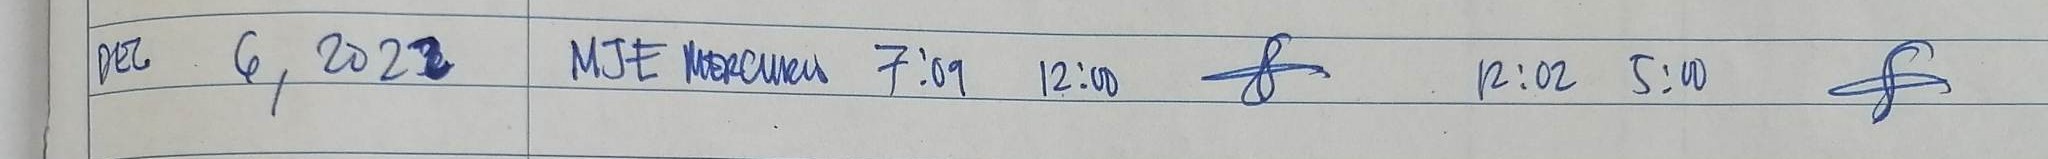 DEC 6, 2022 MJE MERCURIO 7:09 12:00 12:02 5:00